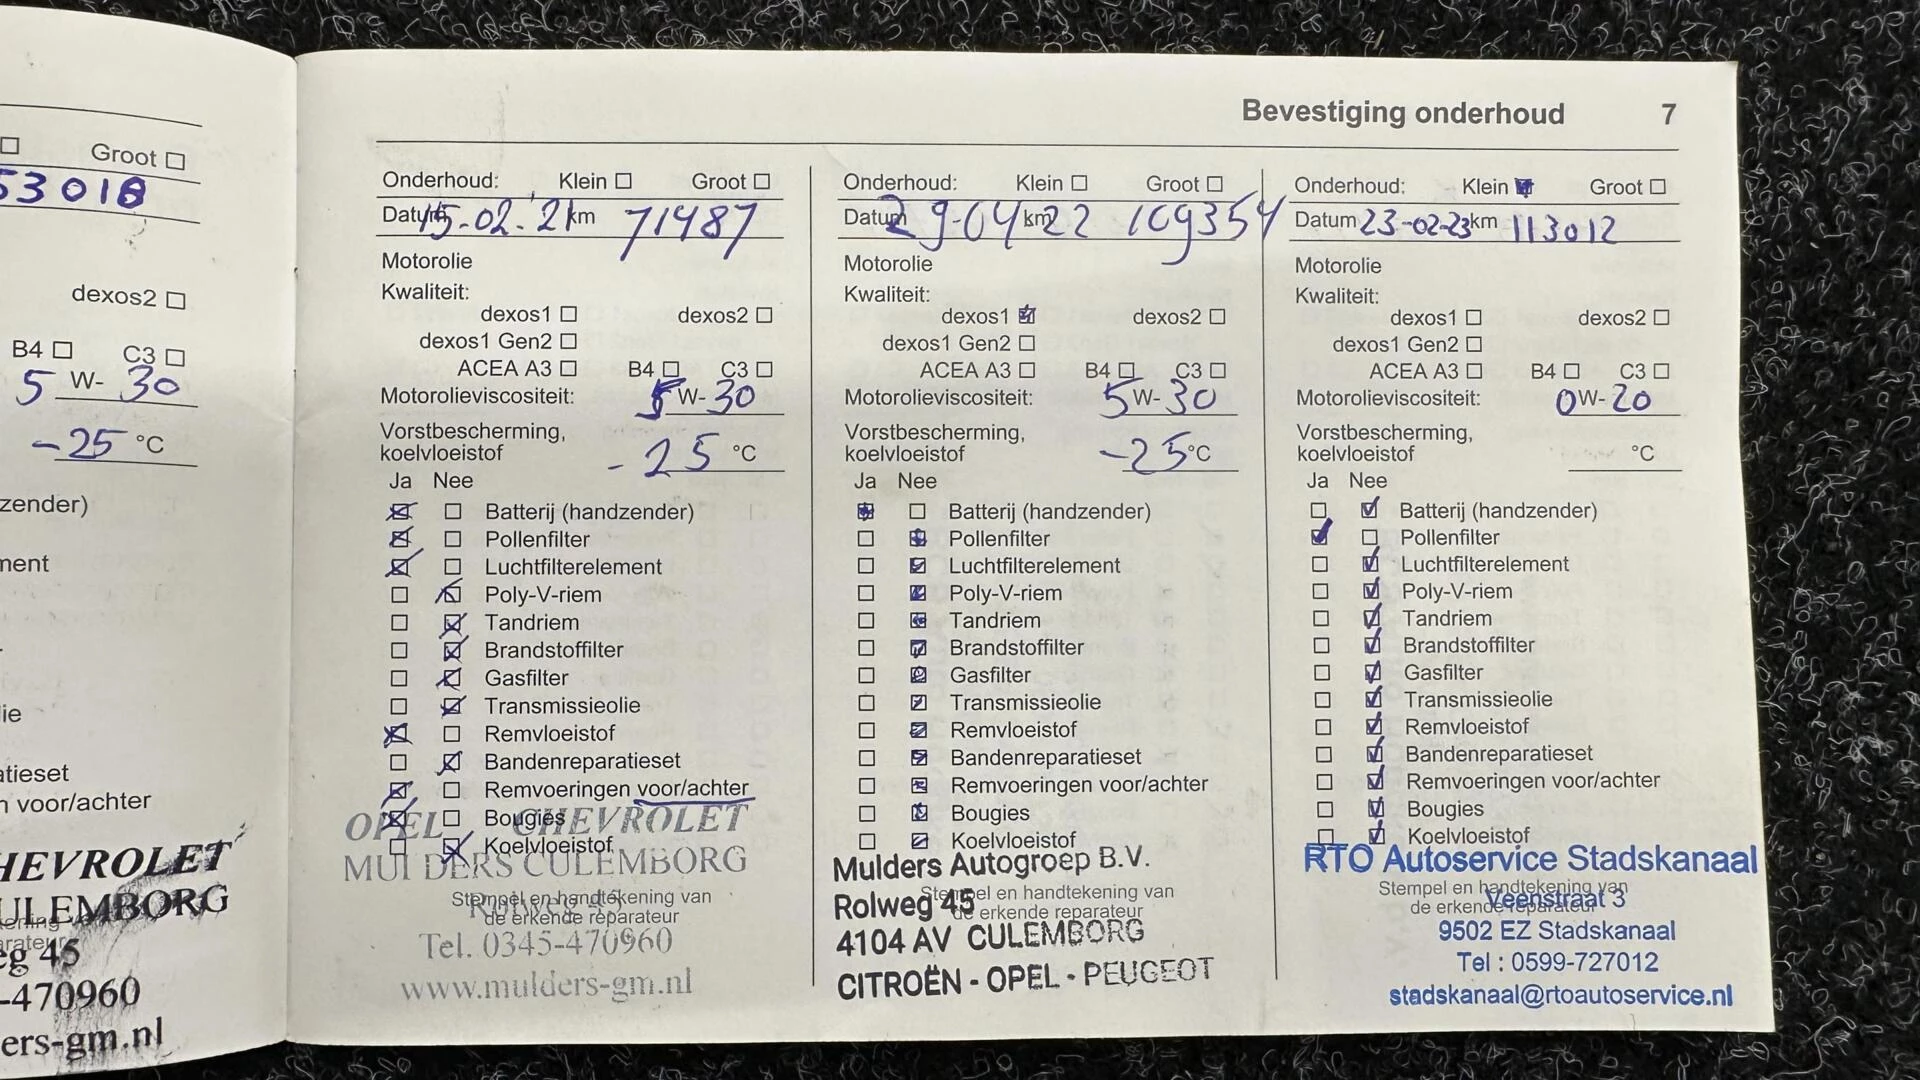 Groot
53018
dexos2
B4 C3
5 W- 30
-25 °C
zender)
ment
lie
atieset
n voor/achter
HEVROLET
ULEMBORG
eg 45
-470960
ers-gm.nl
Bevestiging onderhoud 7
Onderhoud: Klein Groot
Datum 15-02-21 km 71487
Motorolie
Kwaliteit:
dexos1 dexos2
dexos1 Gen2
ACEA A3 B4 C3
Motorolieviscositeit: 5 W- 30
Vorstbescherming,
koelvloeistof -25 °C
Ja Nee
Batterij (handzender)
Pollenfilter
Luchtfilterelement
Poly-V-riem
Tandriem
Brandstoffilter
Gasfilter
Transmissieolie
Remvloeistof
Bandenreparatieset
Remvoeringen voor/achter
Bougies
Koelvloeistof
OPEL CHEVROLET
MULDERS CULEMBORG
Stempel en handtekening van
de erkende reparateur
Rolweg 45
Tel. 0345-470960
www.mulders-gm.nl
Onderhoud: Klein Groot
Datum 29-04-22 km 109354
Motorolie
Kwaliteit:
dexos1 dexos2
dexos1 Gen2
ACEA A3 B4 C3
Motorolieviscositeit: 5 W- 30
Vorstbescherming,
koelvloeistof -25 °C
Ja Nee
Batterij (handzender)
Pollenfilter
Luchtfilterelement
Poly-V-riem
Tandriem
Brandstoffilter
Gasfilter
Transmissieolie
Remvloeistof
Bandenreparatieset
Remvoeringen voor/achter
Bougies
Koelvloeistof
Mulders Autogroep B.V.
Stempel en handtekening van
Rolweg 45
de erkende reparateur
4104 AV CULEMBORG
CITROËN - OPEL - PEUGEOT
Onderhoud: Klein Groot
Datum 23-02-23 km 113012
Motorolie
Kwaliteit:
dexos1 dexos2
dexos1 Gen2
ACEA A3 B4 C3
Motorolieviscositeit: 0 W- 20
Vorstbescherming,
koelvloeistof °C
Ja Nee
Batterij (handzender)
Pollenfilter
Luchtfilterelement
Poly-V-riem
Tandriem
Brandstoffilter
Gasfilter
Transmissieolie
Remvloeistof
Bandenreparatieset
Remvoeringen voor/achter
Bougies
Koelvloeistof
RTO Autoservice Stadskanaal
Stempel en handtekening van
de erkende reparateur
Veenstraat 3
9502 EZ Stadskanaal
Tel : 0599-727012
stadskanaal@rtoautoservice.nl